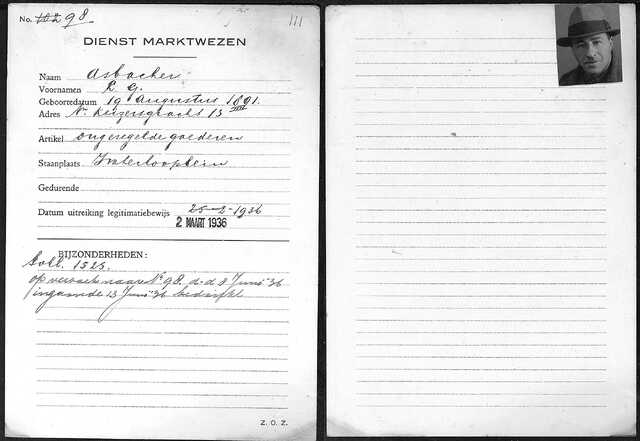 No. 1029 98. III
DIENST MARKTWEZEN
Naam Asbacher
Voornamen L. G.
Geboortedatum 19 Augustus 1891.
Adres N. Keizersgracht 13
Artikel ongeregelde goederen
Staanplaats Waterlooplein
Gedurende
Datum uitreiking legitimatiebewijs 25-2-1936
2 MAART 1936
BIJZONDERHEDEN:
Soll. 1525.
op verzoek naar No 98. d.d. 8 Juni '36
ingaande 13 Juni '36
Z. O. Z.